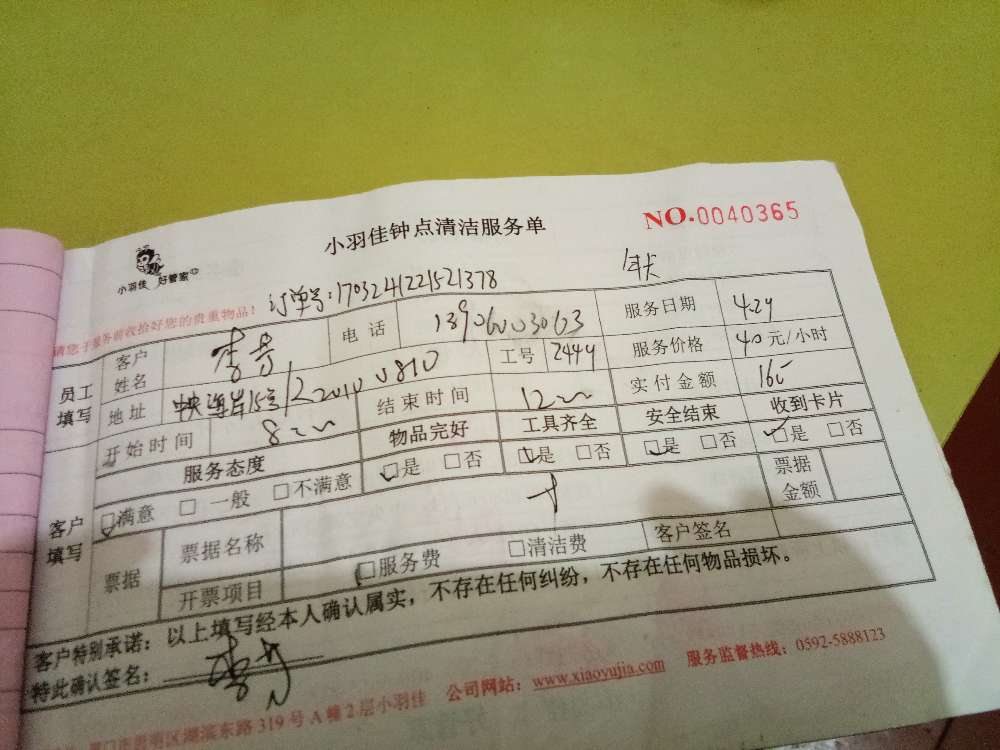 小羽佳钟点清洁服务单
NO.0040365
小羽佳 好管家
请您于服务前收拾好您的贵重物品!
订单号:1703241221521378
员工填写
客户姓名 李芳 电话 服务日期 4.29
地址 工号 2444 服务价格 40元/小时
开始时间 8 结束时间 12 实付金额
客户填写
服务态度 物品完好 工具齐全 安全结束 收到卡片
□满意 □一般 □不满意 □是 □否 □是 □否 □是 □否 □是 □否
票据 票据名称 票据金额
开票项目 □服务费 □清洁费 客户签名
客户特别承诺:以上填写经本人确认属实,不存在任何纠纷,不存在任何物品损坏。
特此确认签名:李芳
厦门市思明区湖滨东路319号A幢2层小羽佳 公司网站:www.xiaoyujia.com 服务监督热线:0592-5888123